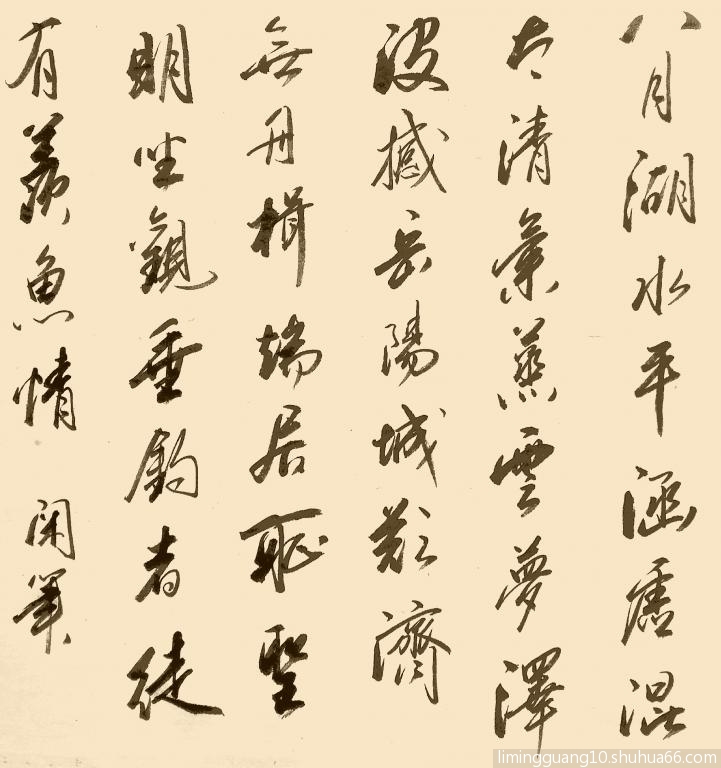 八月湖水平涵虛混
太清氣蒸雲夢澤
波撼岳陽城欲濟
無舟楫端居恥聖
明坐觀垂釣者徒
有羨魚情 閑筆
limingguang10.shuhua66.com